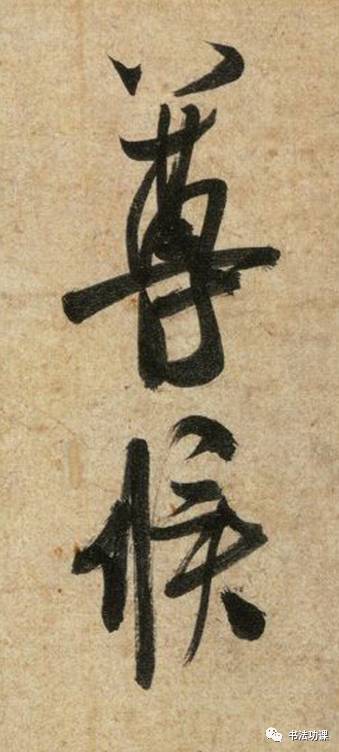 尊候
书法功课